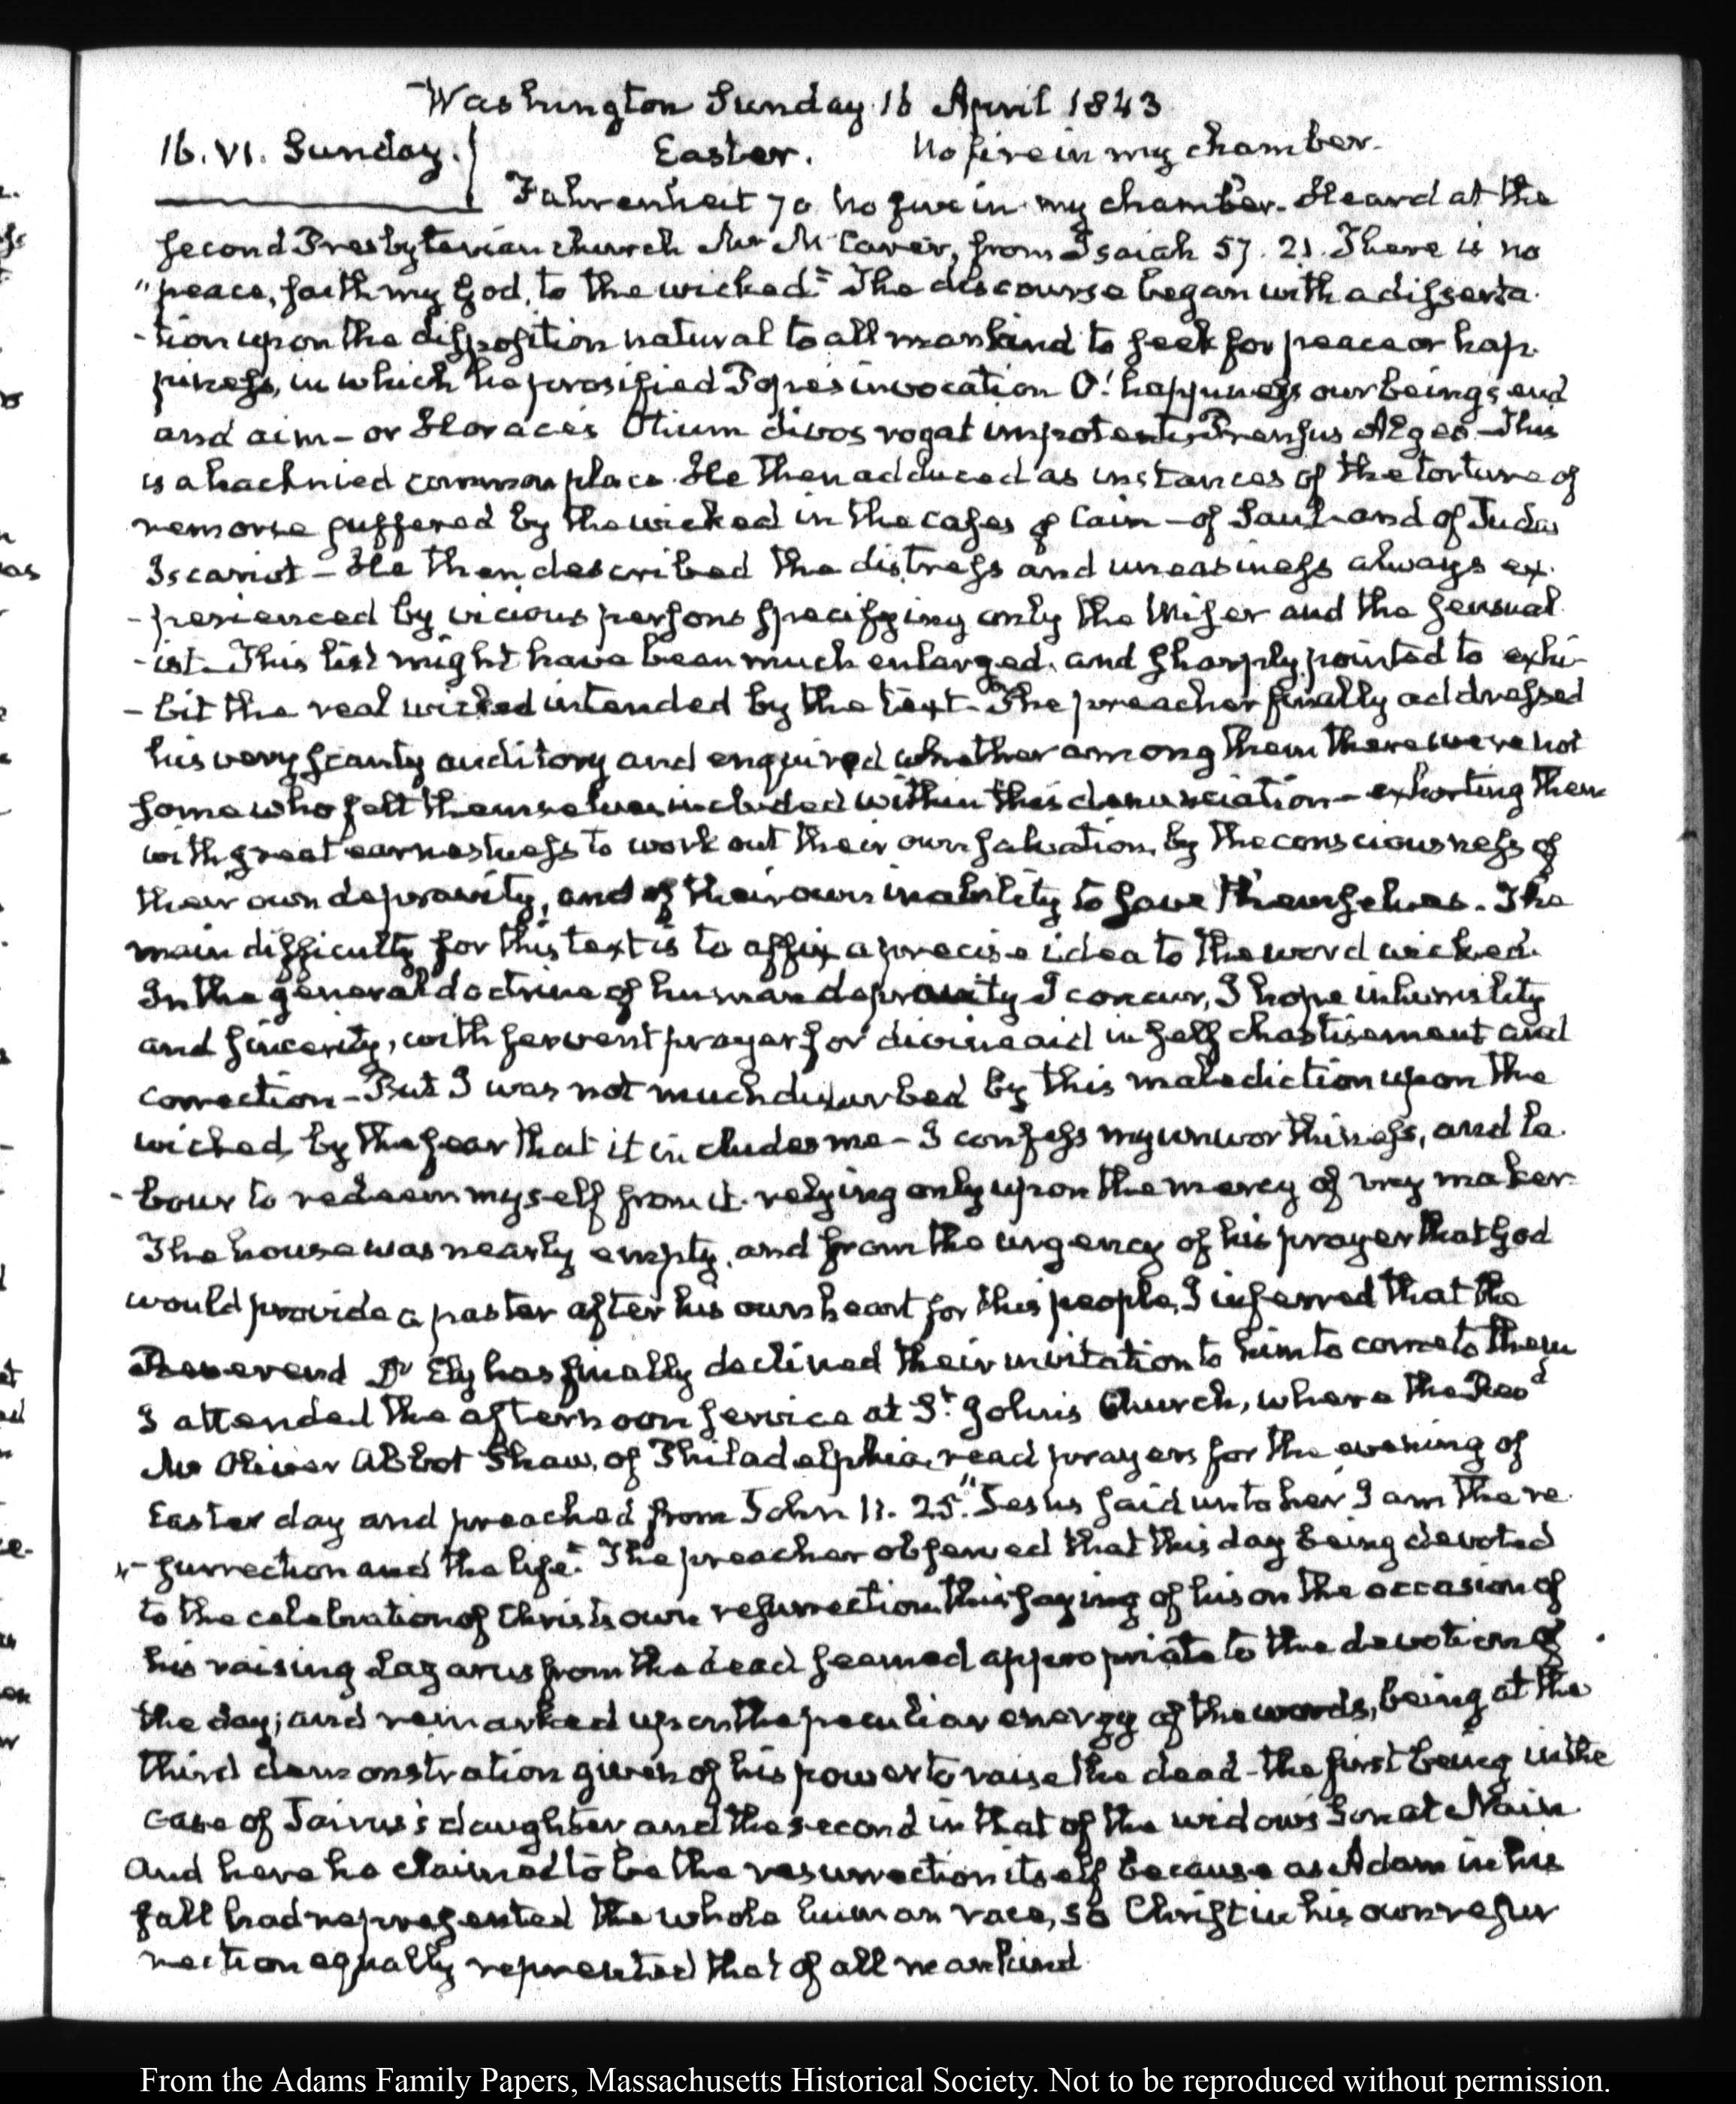 Washington Sunday 16 April 1843
16. VI. Sunday. Easter. No fire in my chamber.
Fahrenheit 70 no fire in my chamber. Heard at the
second Presbyterian church Mr from Isaiah 57. 21. There is no
"peace, saith my God, to the wicked." The discourse began with a disserta-
-tion upon the disposition natural to all mankind to seek for peace or hap-
piness, in which he prosified Pope's invocation O! happiness our being's end
and aim—or Horace's Otium divos rogat Prensus This
is a hacknied common place. He then adduced as instances of the torture of
remorse suffered by the wicked in the cases of Cain—of Saul and of Judas
Iscariot—He then described the distress and uneasiness always ex-
-perienced by vicious persons specifying only the Miser and the sensual-
-ist—This list might have been much enlarged, and sharply pointed to exhi-
-bit the real wicked intended by the text—The preacher finally addressed
his very scanty auditory and enquired whether among them there were not
some who felt themselves included within this denunciation—exhorting them
with great earnestness to work out their own salvation, by the consciousness of
their own depravity, and of their own inability to save themselves. The
main difficulty for this text is to affix a precise idea to the word wicked.
In the general doctrine of human depravity I concur, I hope in humility
and sincerity, with fervent prayer for divine aid in self chastisement and
correction—But I was not much disturbed by this malediction upon the
wicked, by the fear that it includes me—I confess my unworthiness, and la-
-bour to redeem myself from it. relying only upon the mercy of my maker.
The house was nearly empty, and from the urgency of his prayer that God
would provide a pastor after his own heart for this people, I inferred that the
Reverend Dr Ely has finally declined their invitation to him to come to them
I attended the afternoon service at St. John's Church, where the Revd
Mr Oliver Abbot Shaw, of Philadelphia, read prayers for the evening of
Easter day and preached from John 11. 25. "Jesus said unto her I am the re-
"-surrection and the life." The preacher observed that this day being devoted
to the celebration of Christ's own resurrection, this saying of his on the occasion of
his raising Lazarus from the dead seemed appropriate to the devotion of
the day; and remarked upon the peculiar energy of the words, being at the
third demonstration given of his power to raise the dead—the first being in the
case of Jairus's daughter and the second in that of the widow's Son at Nain.
And here he claimed to be the resurrection itself because as Adam in his
fall had represented the whole human race, so Christ in his own resur
rection equally represented that of all mankind
From the Adams Family Papers, Massachusetts Historical Society. Not to be reproduced without permission.